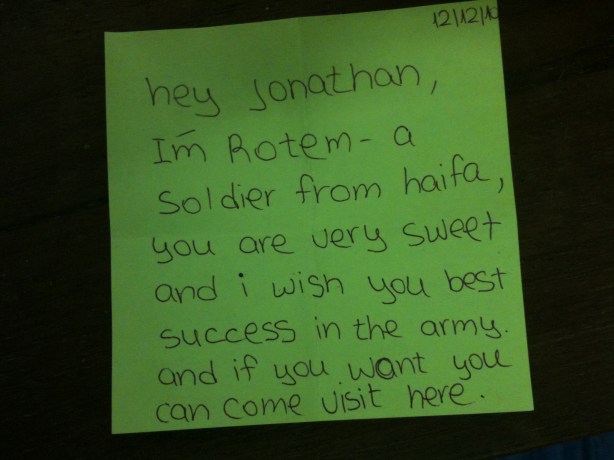 12/12/10
hey Jonathan,
I'm Rotem - a
soldier from haifa,
you are very sweet
and i wish you best
success in the army.
and if you want you
can come visit here.